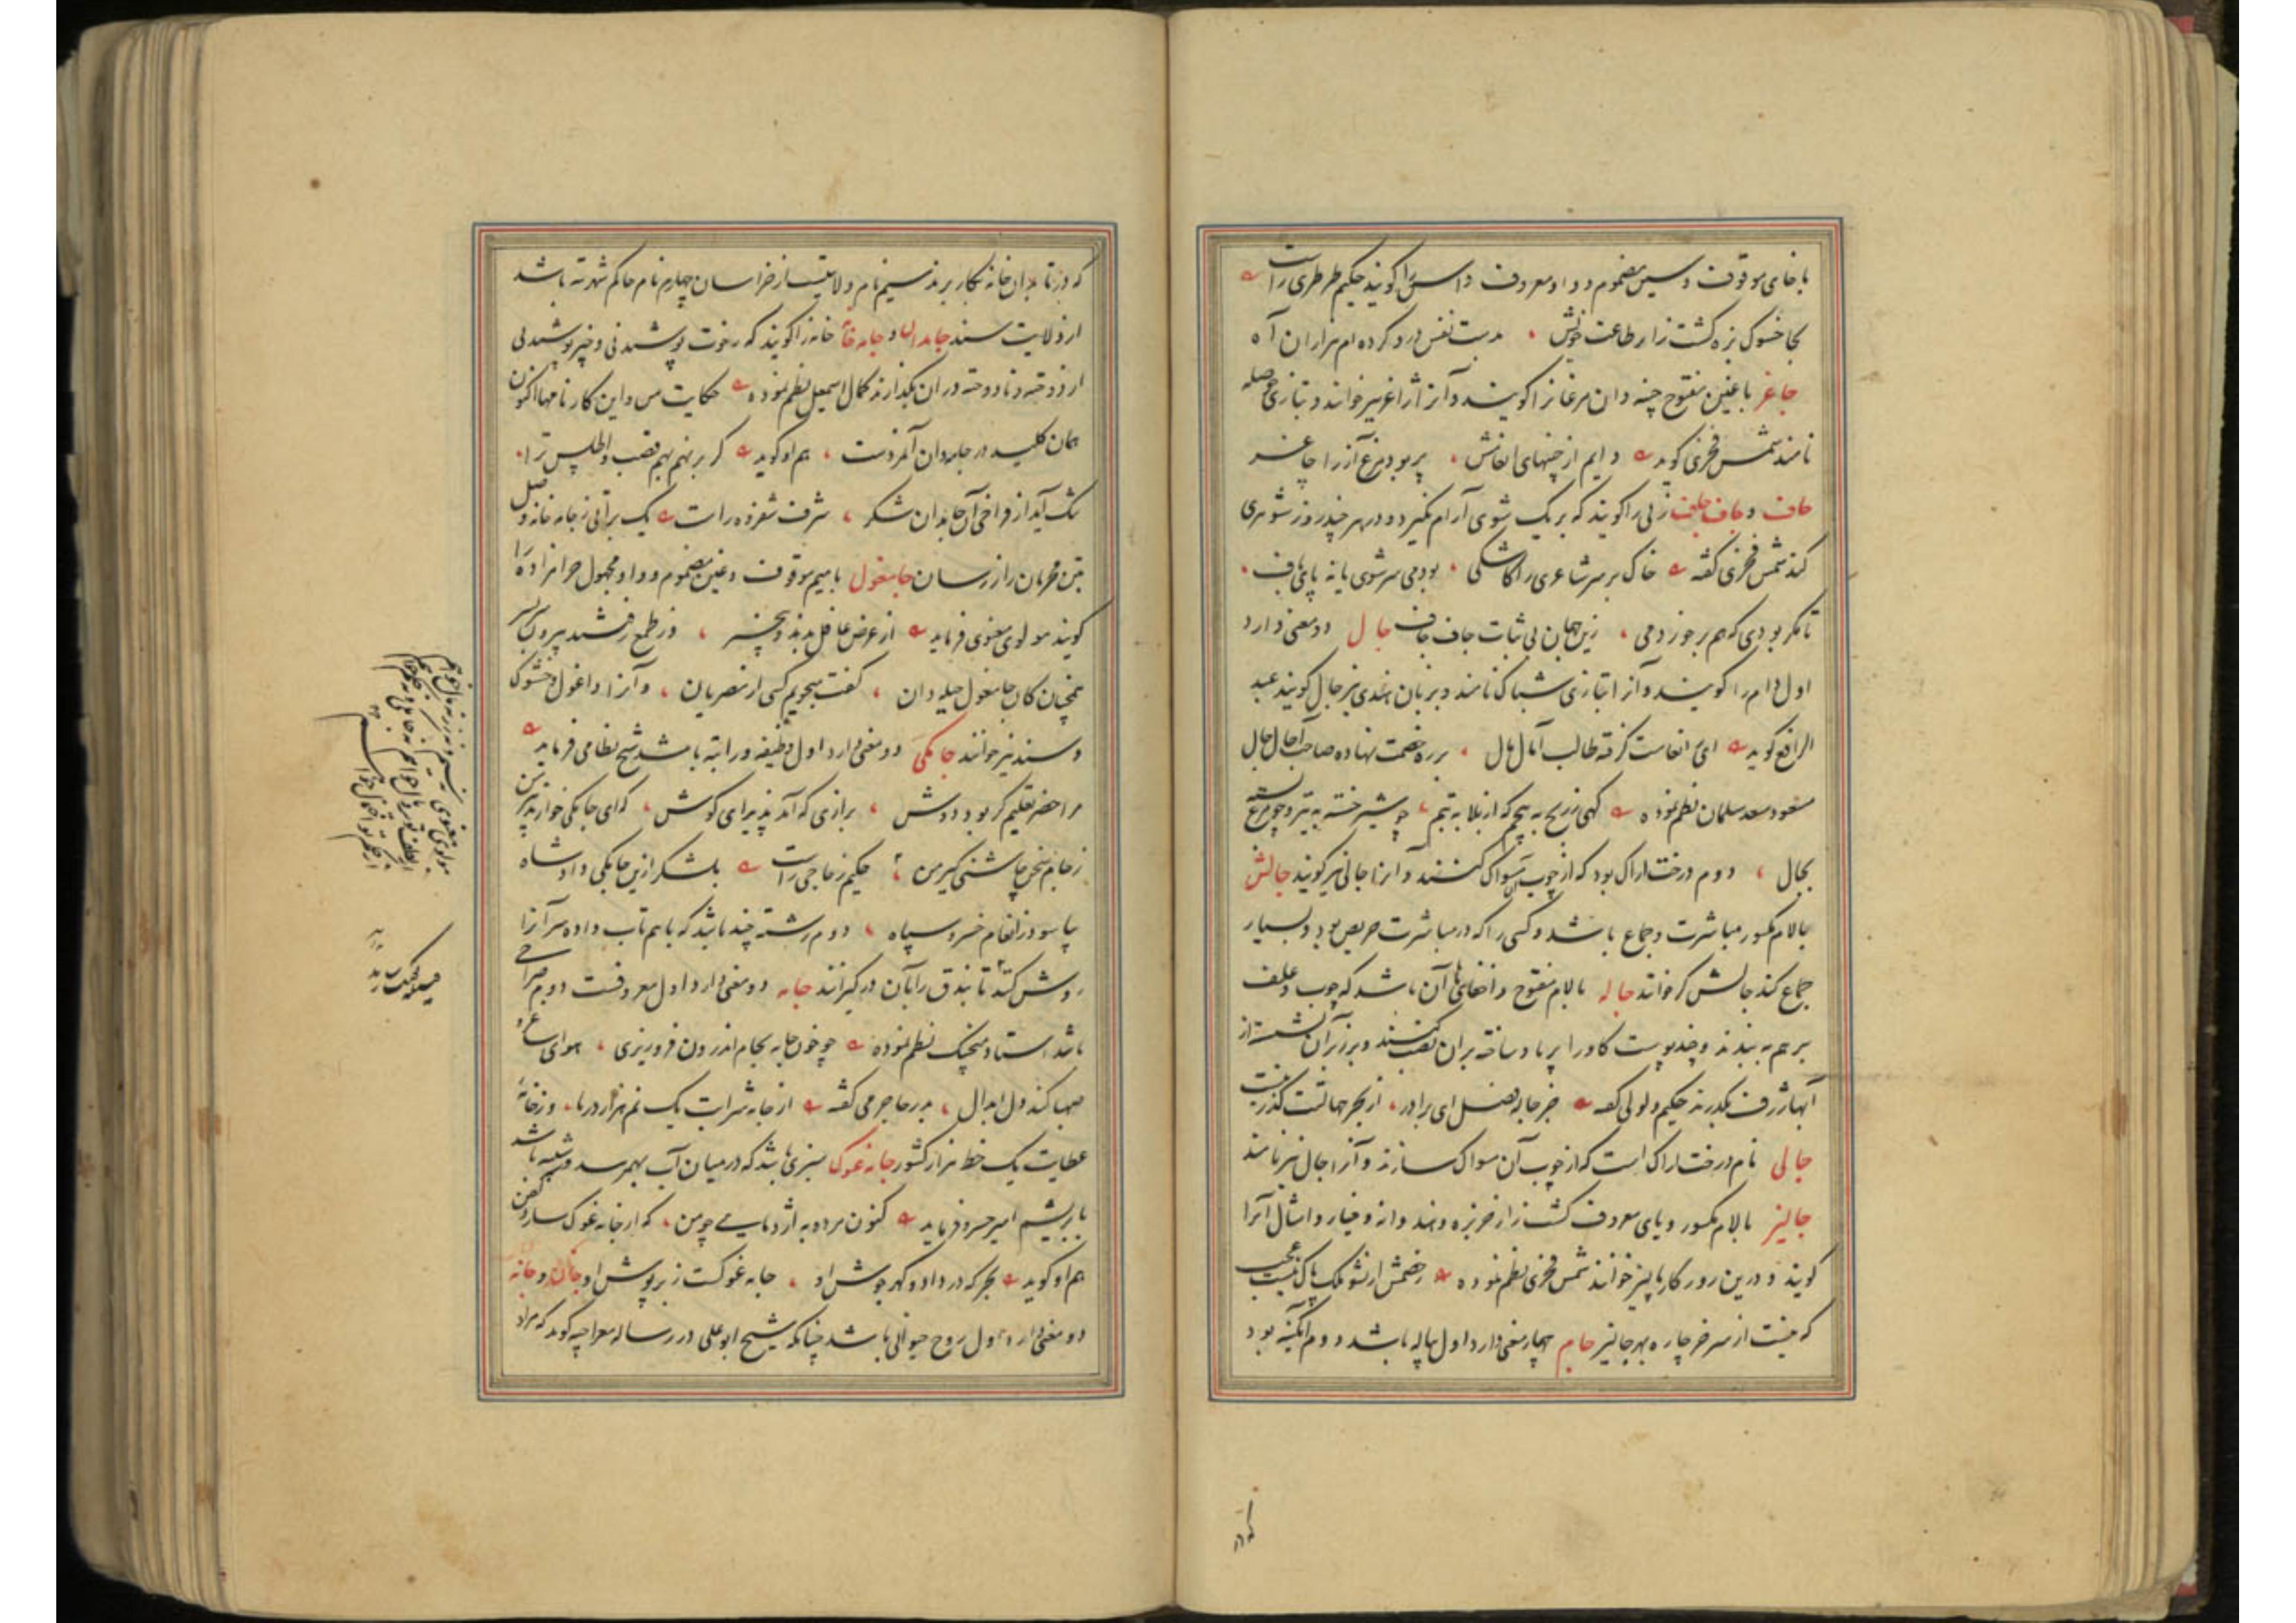 با خای موقوف و سین مضموم و واو معروف داس را گویند حکیم طرطری راست
بجا خسوک بزه کشت زار طاعت خویش بدست نفس درو کرده ام هزاران آه
جاغر با غین مفتوح چینه دان مرغان را گویند و آنرا ژاغر نیز خوانند و بتازی حوصله
نامند شمس فخری گوید دایم از چنهای انعامش پر بود مرغ آز را جاغر
جاف و جاف جاف زنی را گویند که بر یک شوی آرام نگیرد و در هر چند روز شوهری
کند شمس فخری گفته خاک بر سر شاعری را کاشکی بودمی سرشوی یا نه پای باف
تا مگر بودی که هم بر خوردمی زین جهان بی ثبات جاف جاف جال دو معنی دارد
اول دام را گویند و آنرا بتازی شباک نامند و بزبان هندی نیز جال گویند عبد
الرافع گوید ای انعامت گرفته طالب آمال مال بر ره خصمت نهاده صاحب آجال جال
مسعود سعد سلمان نظم نموده گهی ز رنج به پیچم گه از بلا به تپم چو شیر خسته به تیر و چو مرغ بسته
بجال دوم درخت اراک بود که از چوب آن مسواک کنند و آنرا جالی نیز گویند جالش
با لام مکسور مباشرت و جماع باشد و کسی را که در مباشرت حریص بود و بسیار
جماع کند جالش گر خوانند جاله با لام مفتوح و اخفای ها آن باشد که چوب و علف
بر هم به بندند و چند پوست گاو را پر باد ساخته بر آن نصب کنند و بر زبر آن نشسته از
آبهاء ژرف بگذرند حکیم ولولی گفته جز جاله فضل ای برادر از بحر جهالتت گذر نیست
جالی نام درخت اراک است که از چوب آن مسواک سازند و آنرا جال نیز نامند
جالیز با لام مکسور و یای معروف کشت زار خربزه و هندوانه و خیار و امثال آنرا
گویند و درین روزگار پالیز خوانند شمس فخری نظم نموده خصمش ار نشو ملک پاک نیست عجب
که نیست از سر خر چاره بهر جالیز جام چهار معنی دارد اول پیاله باشد دوم آبگینه بود
که در تابدان خانه بکار برند سیم نام ولایتیست از خراسان چهارم نام حاکم شهر تته باشد
از ولایت سند جامدان و جامه خانه خانه را گویند که رخوت پوشیدنی و غیر پوشیدنی
از دوخته و نادوخته در آن بگذارند کمال اسمعیل نظم نموده حکایت من و این کارنامها اکنون
همان کلید در جامه دان آمدست هم او گوید گر بر نهم بهم قصب و اطلس ترا
تنگ آید از فراخی آن جامدان شکر شرف شفروه راست یک براتی ز جامه خانه فضل
بتن محرمان راز رسان جامغول با میم موقوف و غین مضموم و واو مجهول حرامزاده را
گویند مولوی معنوی فرماید
همچنان کان جامغول حیله دان گفت میجویم کسی از مصریان و آنرا داغول و خشوک
و سند نیز خوانند جامگی دو معنی دارد اول وظیفه و راتبه باشد شیخ نظامی فرماید
مرا خضر تعلیم گر بود دوش برازی که آمد پذیرای گوش که ای جامگی خوار تدبیر من
ز جام سخن چاشنی گیر من حکیم زجاجی راست بلشکر ازین جامگی داد شاه
بیاسود ز انعام خسرو سپاه دوم رشته چند باشد که با هم تاب داده سر آنرا
روشن کنند تا بندق را بآن در گیرانند جامه دو معنی دارد اول معروفست دوم صراحی
باشد استاد منجیک نظم نموده چو خون جامه بجام اندرون فرو ریزی هوای
صهبا کند دل ابدال بدر جاجرمی گفته از جامه شرابت یک نم هزار دریا وز خامه
عطایت یک خط هزار کشور جامه غوک سبزی باشد که در میان آب بهم رسد و شبیه باشد
بابریشم امیر خسرو فرماید کنون مرده به اژدهایی چو من که از جامه غوک سازد کفن
هم او گوید بحر که در داد و گهر جوش او جامه غوکست ز بر پوش او جان و جانه
دو معنی دارد اول روح حیوانی باشد چنانکه شیخ ابو علی در رساله معراجیه گوید که مراد